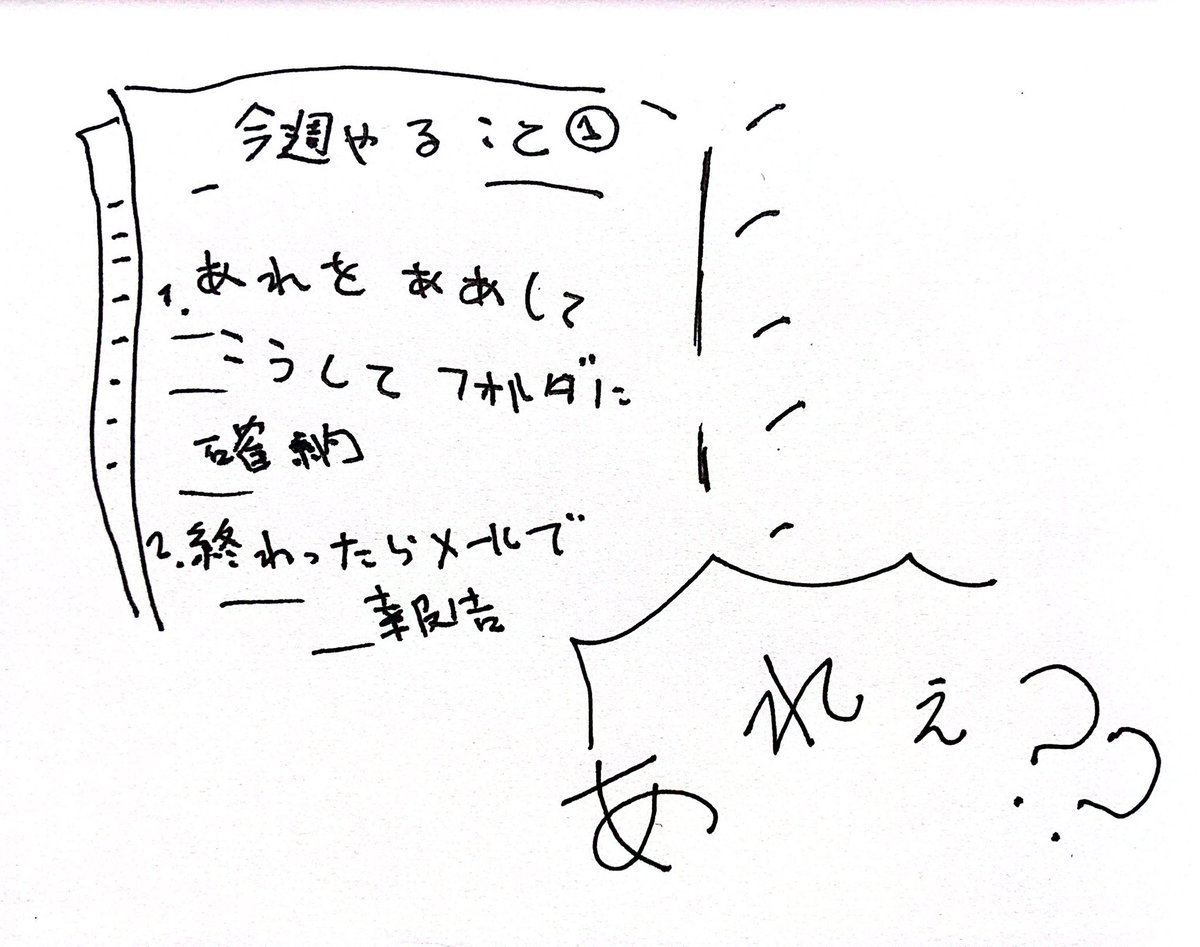 今週やること①
1. あれをああして
こうしてフォルダに
確納
2. 終わったらメールで
報告
あれぇ??